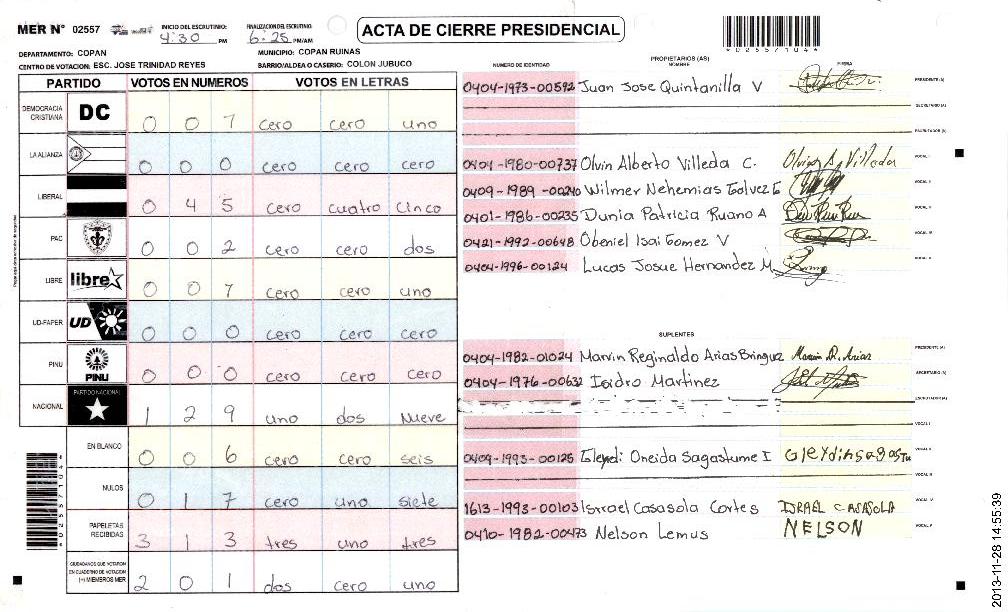 MER N° 02557
INICIO DEL ESCRUTINIO:
4:30 PM
FINALIZACION DEL ESCRUTINIO:
6:25 PM/AM
ACTA DE CIERRE PRESIDENCIAL
*02557104*
DEPARTAMENTO: COPAN
MUNICIPIO: COPAN RUINAS
CENTRO DE VOTACION: ESC. JOSE TRINIDAD REYES
BARRIO/ALDEA O CASERIO: COLON JUBUCO
PARTIDO VOTOS EN NUMEROS VOTOS EN LETRAS
DEMOCRACIA CRISTIANA DC 0 0 7 cero cero uno
LA ALIANZA 0 0 0 cero cero cero
LIBERAL 0 4 5 cero cuatro cinco
PAC 0 0 2 cero cero dos
LIBRE libre 0 0 7 cero cero uno
UD-FAPER UD 0 0 0 cero cero cero
PINU PINU 0 0 0 cero cero cero
NACIONAL PARTIDO NACIONAL 1 2 9 uno dos Nueve
EN BLANCO 0 0 6 cero cero seis
NULOS 0 1 7 cero uno siete
PAPELETAS RECIBIDAS 3 1 3 tres uno tres
CIUDADANOS QUE VOTARON EN CUADERNO DE VOTACION (+) MIEMBROS MER 2 0 1 dos cero uno
NUMERO DE IDENTIDAD
PROPIETARIOS (AS)
NOMBRE
FIRMA
0404-1973-00592 Juan Jose Quintanilla V PRESIDENTE (A)
SECRETARIO (A)
ESCRUTADOR (A)
0404-1980-00737 Olvin Alberto Villeda C. VOCAL I
0409-1989-00240 Wilmer Nehemias Galvez G VOCAL II
0401-1986-00235 Dunia Patricia Ruano A
0421-1992-00648 Obeniel Isai Gomez V
0404-1996-00124 Lucas Josue Hernandez M
SUPLENTES
0404-1982-01024 Marvin Reginaldo Arias Bringuez Marvin R. Arias PRESIDENTE (A)
0404-1976-00632 Isidro Martinez SECRETARIO (A)
ESCRUTADOR (A)
VOCAL I
0409-1993-00125 Oneida Sagastume I VOCAL II
VOCAL III
1613-1993-00103 Israel Casasola Cortes ISRAEL C CASASOLA VOCAL IV
0410-1982-00473 Nelson Lemus NELSON VOCAL V
*02557104*
2013-11-28 14:55:39